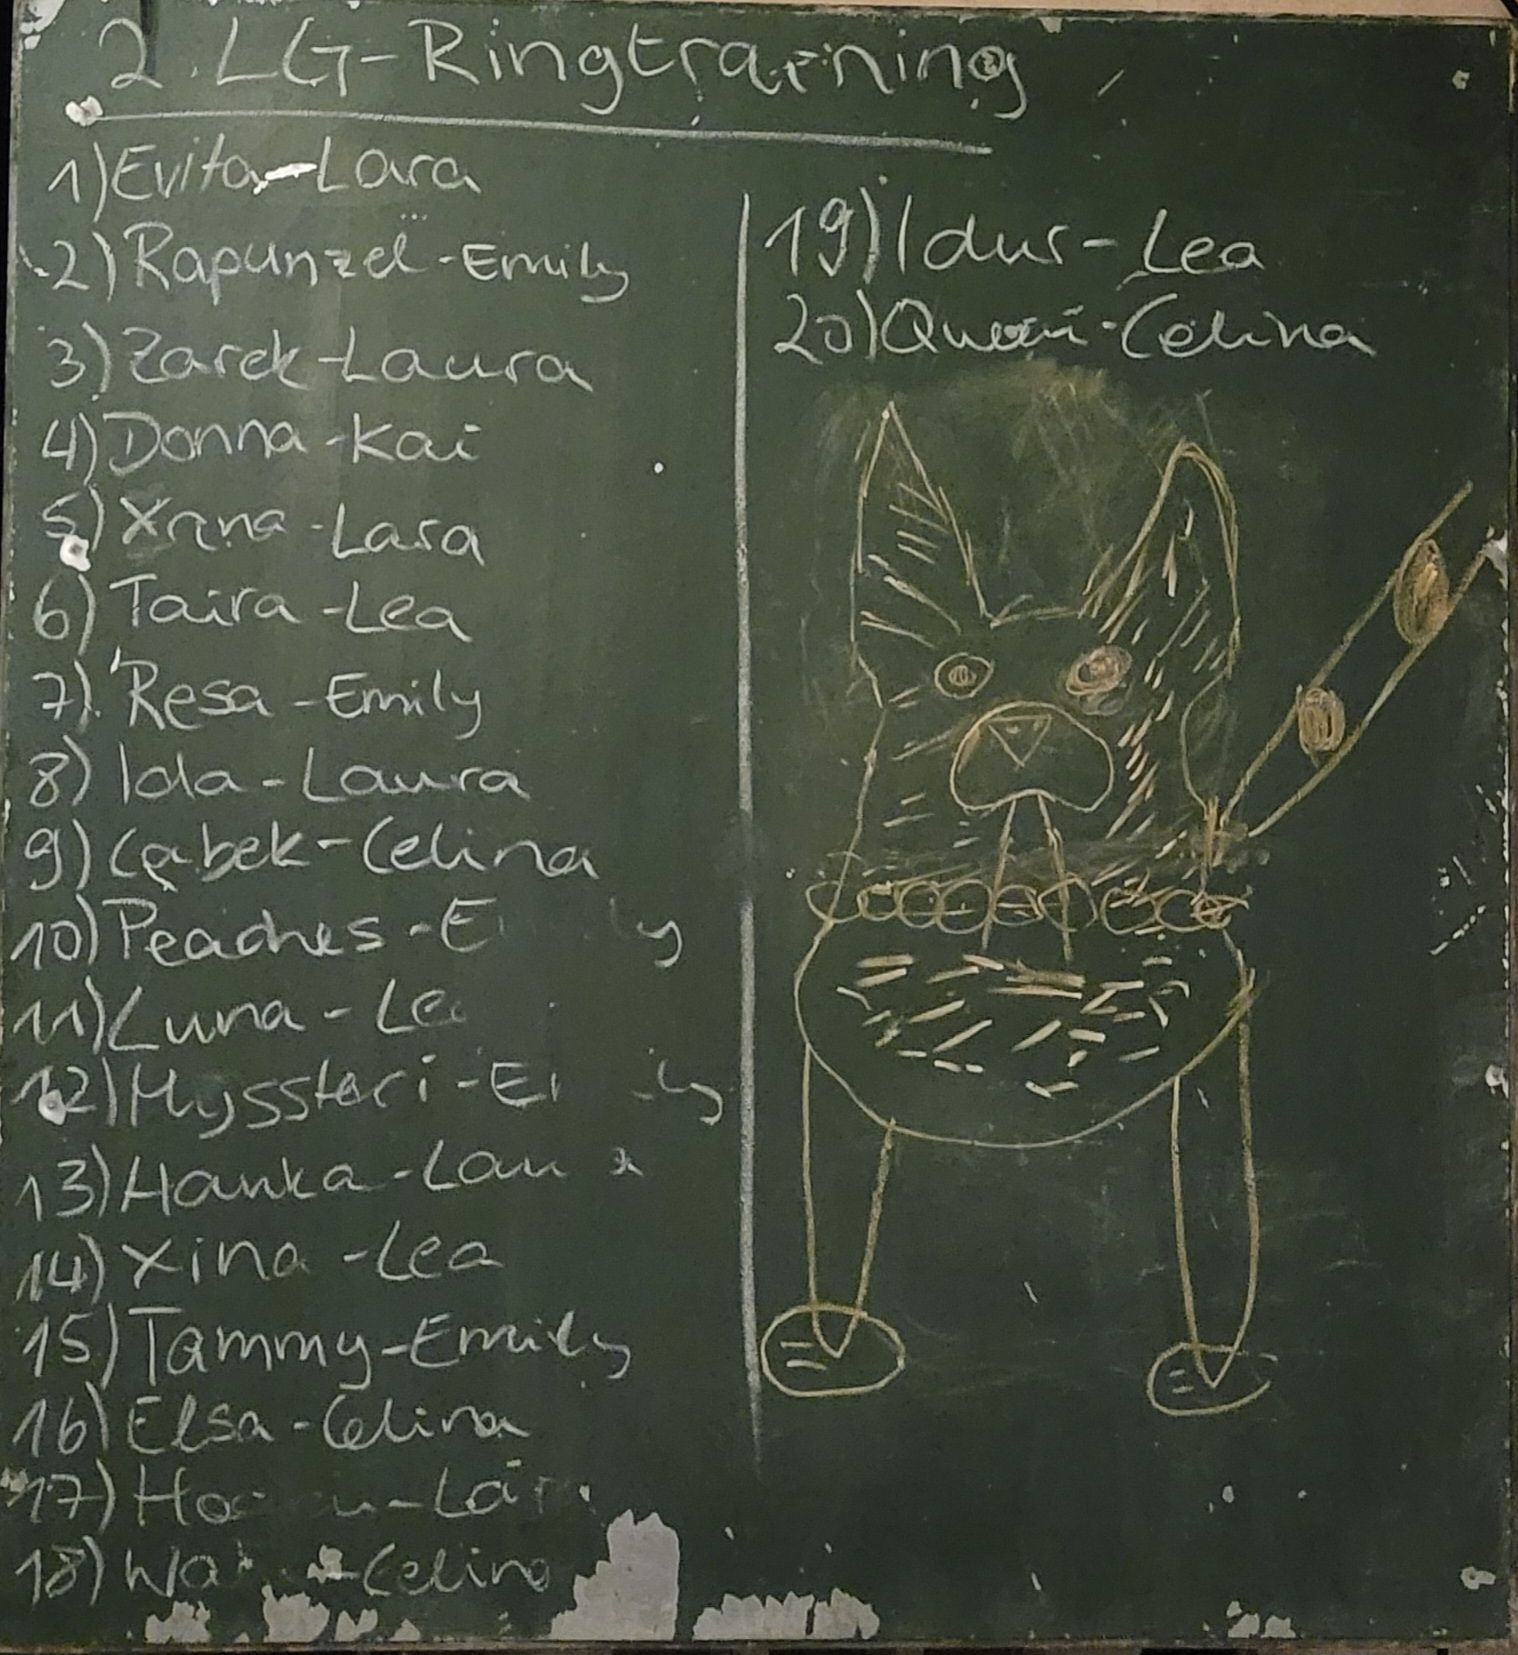 2. LG-Ringtraining
1) Evita-Lara
2) Rapunzel-Emily
3) Zarek-Laura
4) Donna-Kai
5) Xana-Lara
6) Taira-Lea
7) Resa-Emily
8) Ida-Laura
9) Cabek-Celina
10) Peaches-
11) Luna-
12)
13) Hanka-
14) Xina-Lea
15) Tammy-Emily
16) Elsa-Celina
17)
18) -Celina
19) Idus-Lea
20) Queen-Celina